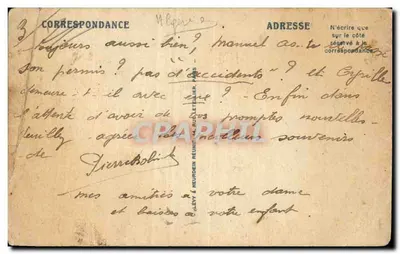 3
CORRESPONDANCE
ADRESSE
N'écrire que
sur le côté
réservé à la
correspondance
toujours aussi bien ? Manuel as-t
son permis ? pas d'accidents" ? et
demeure-t-il avec eux ? Enfin dans
l'attente d'avoir de vos promptes nouvelles
veuillez agréer les meilleurs souvenirs
de Pierre
mes amitiés à votre dame
et baisers à votre enfant
LÉVY & NEURDEIN RÉUNIS
CPARAMA